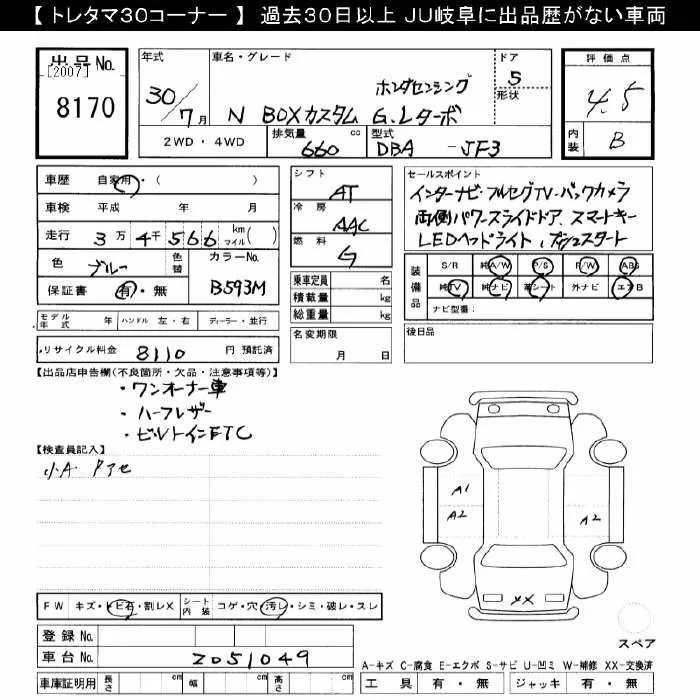 【 トレタマ30コーナー 】 過去30日以上 JU岐阜に出品歴がない車両
出品 No. [2007] 8170
年式 30/7月
車名・グレード ホンダセンシング
N BOXカスタム G.Lターボ
ドア 5
形状
評価点 4.5
内装 B
2WD・4WD 排気量 660 cc 型式 DBA -JF3
車歴 自家用・( )
車検 平成 年 月
走行 3万 4千 5 6 6 km マイル( )
色 ブルー 色替 カラーNo. B593M
保証書 有・無
モデル年式 年 ハンドル 左・右 ディーラー・並行
リサイクル料金 8110 円 預託済
シフト AT
冷房 AAC
燃料 G
乗車定員 名
積載量 kg
総重量 kg
名変期限 月 日
セールスポイント
インターナビ・フルセグTV・バックカメラ
両側パワースライドドア、スマートキー
LEDヘッドライト、プッシュスタート
装備品
S/R 純A/W P/S P/W ABS
純TV 純ナビ 革シート 外ナビ エアB
ナビ型番:
後日品
【出品店申告欄(不良箇所・欠品・注意事項等)】
・ワンオーナー車
・ハーフレザー
・ビルトインETC
【検査員記入】
小A
A1
A2 A2
XX
スペア
FW キズ・トビ石・割レX シート内装 コゲ・穴・汚レ・シミ・破レ・スレ
登録 No.
車台 No. 2051049
A-キズ C-腐食 E-エクボ S-サビ U-凹ミ W-補修 XX-交換済
車庫証明用 長さ cm 幅 cm 高さ cm
工具 有・無 ジャッキ 有・無